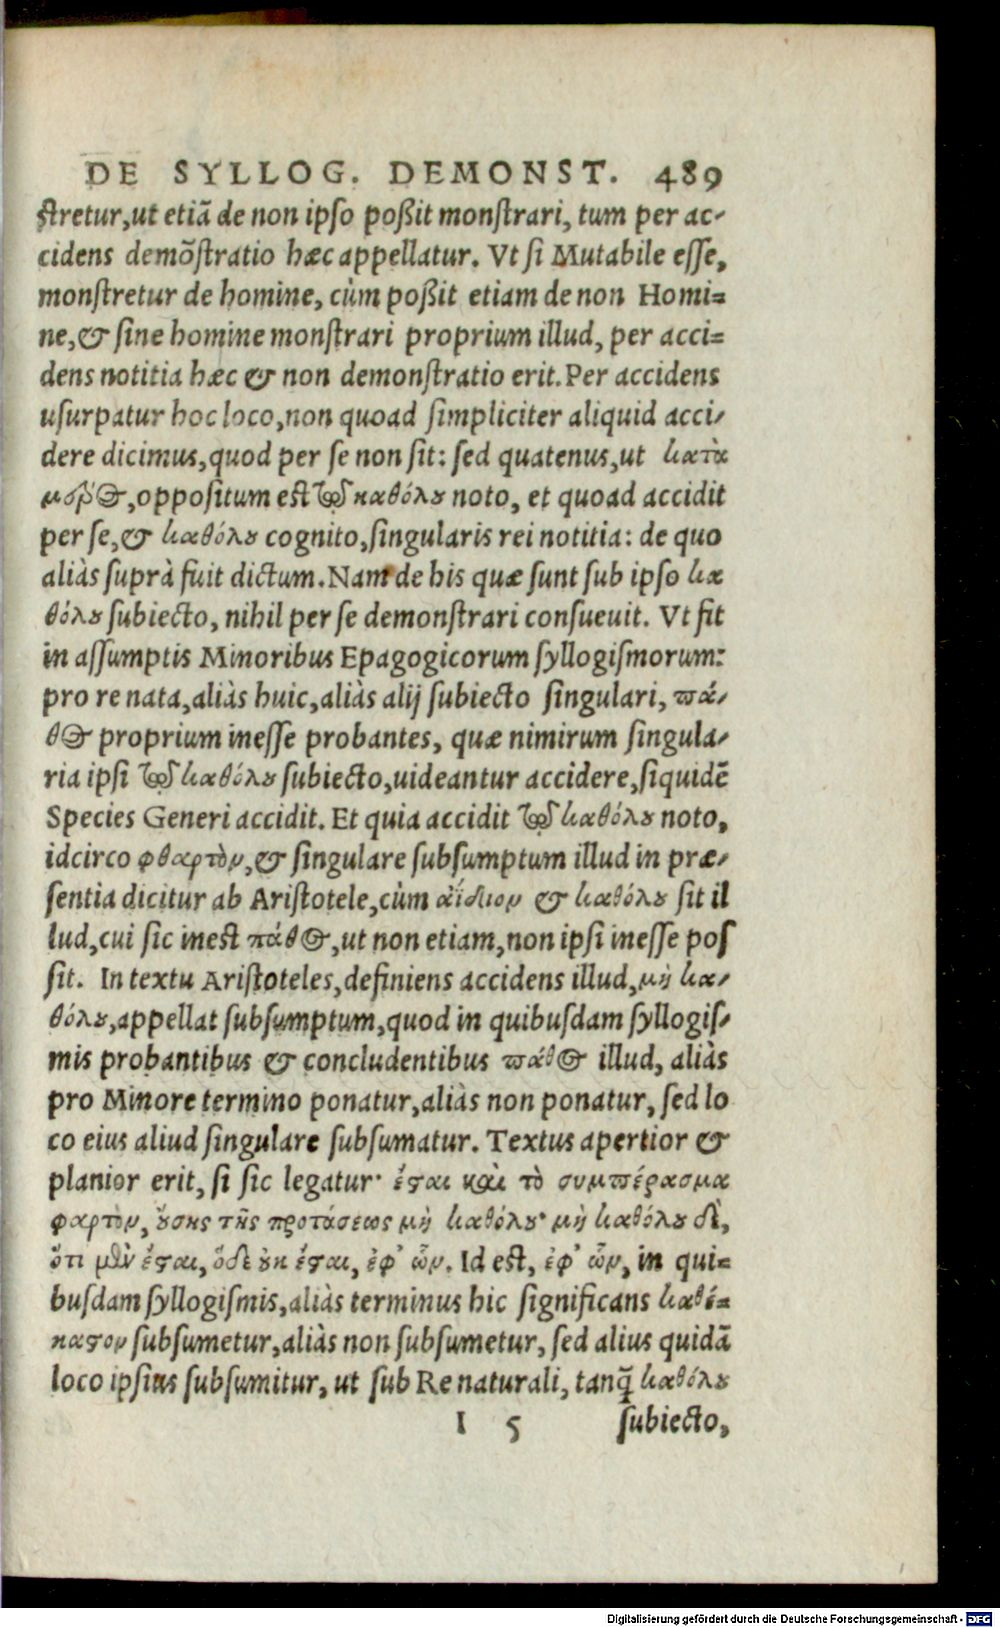 DE SYLLOG. DEMONST. 489
stretur, ut etiã de non ipso poßit monstrari, tum per ac-
cidens demõstratio hæc appellatur. Vt si Mutabile esse,
monstretur de homine, cùm poßit etiam de non Homi=
ne, & sine homine monstrari proprium illud, per acci=
dens notitia hæc & non demonstratio erit. Per accidens
usurpatur hoc loco, non quoad simpliciter aliquid acci-
dere dicimus, quod per se non sit: sed quatenus, ut κατὰ
μέρος, oppositum est τῷ καθόλου noto, et quoad accidit
per se, & καθόλου cognito, singularis rei notitia: de quo
aliàs suprà fuit dictum. Nam de his quæ sunt sub ipso κα
θόλου subiecto, nihil per se demonstrari consueuit. Vt fit
in assumptis Minoribus Epagogicorum syllogismorum:
pro re nata, aliàs huic, aliàs alij subiecto singulari, πά-
θος proprium inesse probantes, quæ nimirum singula-
ria ipsi τῷ καθόλου subiecto, uideantur accidere, siquidẽ
Species Generi accidit. Et quia accidit τῷ καθόλου noto,
idcirco φθαρτὸν, & singulare subsumptum illud in præ-
sentia dicitur ab Aristotele, cùm ἀΐδιον & καθόλου sit il
lud, cui sic inest πάθος, ut non etiam, non ipsi inesse pos
sit. In textu Aristoteles, definiens accidens illud, μὴ κα-
θόλου, appellat subsumptum, quod in quibusdam syllogis-
mis probantibus & concludentibus πάθος illud, aliàs
pro Minore termino ponatur, aliàs non ponatur, sed lo
co eius aliud singulare subsumatur. Textus apertior &
planior erit, si sic legatur· ἔσαι καὶ τὸ συμπέρασμα
φαρτὸν, ούσης τῆς προτάσεως μὴ καθόλου· μὴ καθόλου δὲ,
ὅτι μὲν ἔσται, ὅδε οὐκ ἔσται, ἐφ' ὧν. Id est, ἐφ' ὧν, in qui=
busdam syllogismis, aliàs terminus hic significans καθέ=
καστον subsumetur, aliàs non subsumetur, sed alius quidã
loco ipsius subsumitur, ut sub Re naturali, tanq̃ καθόλου
I 5 subiecto,
Digitalisierung gefördert durch die Deutsche Forschungsgemeinschaft - DFG